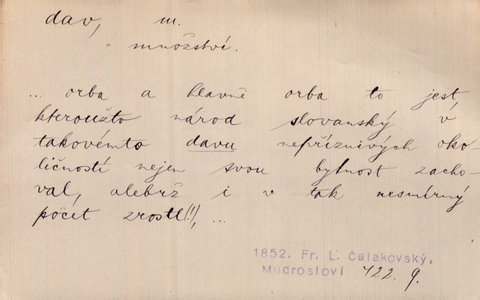 dav, m.
množství.
... orba a hlavně orba to jest
kteroužto národ slovanský v
takovémto davu nepříznivých oko
ličností nejen svou bytnost zacho-
val, alebrž i v tak nesmírný
počet zrostl(!), ...
1852. Fr. L. Čelakovský,
Mudrosloví 422. 9.